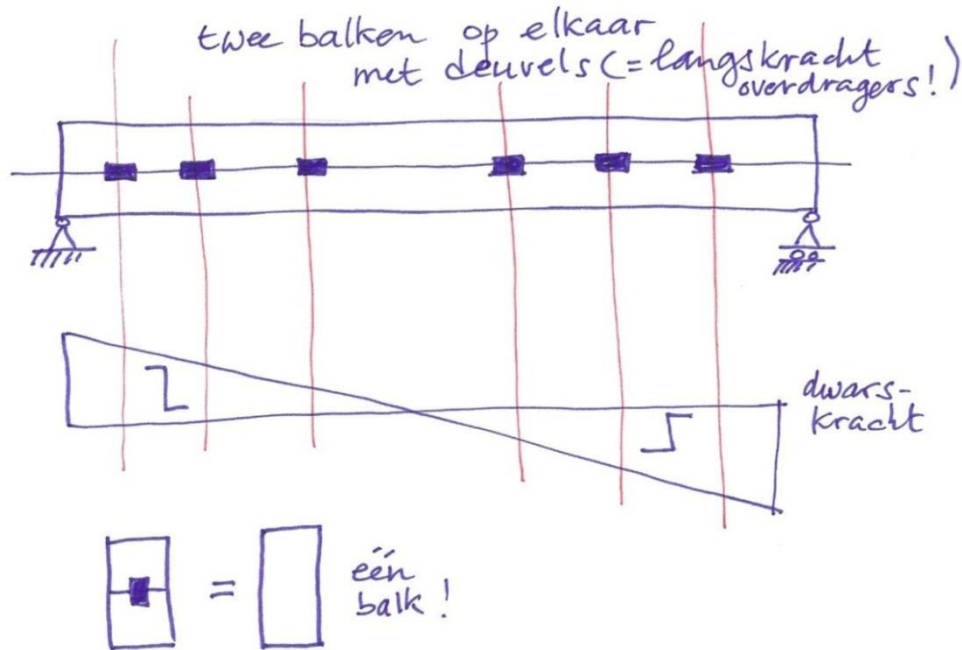 twee balken op elkaar
met deuvels (= langskracht
overdragers!)
dwars-
kracht
=
één
balk!